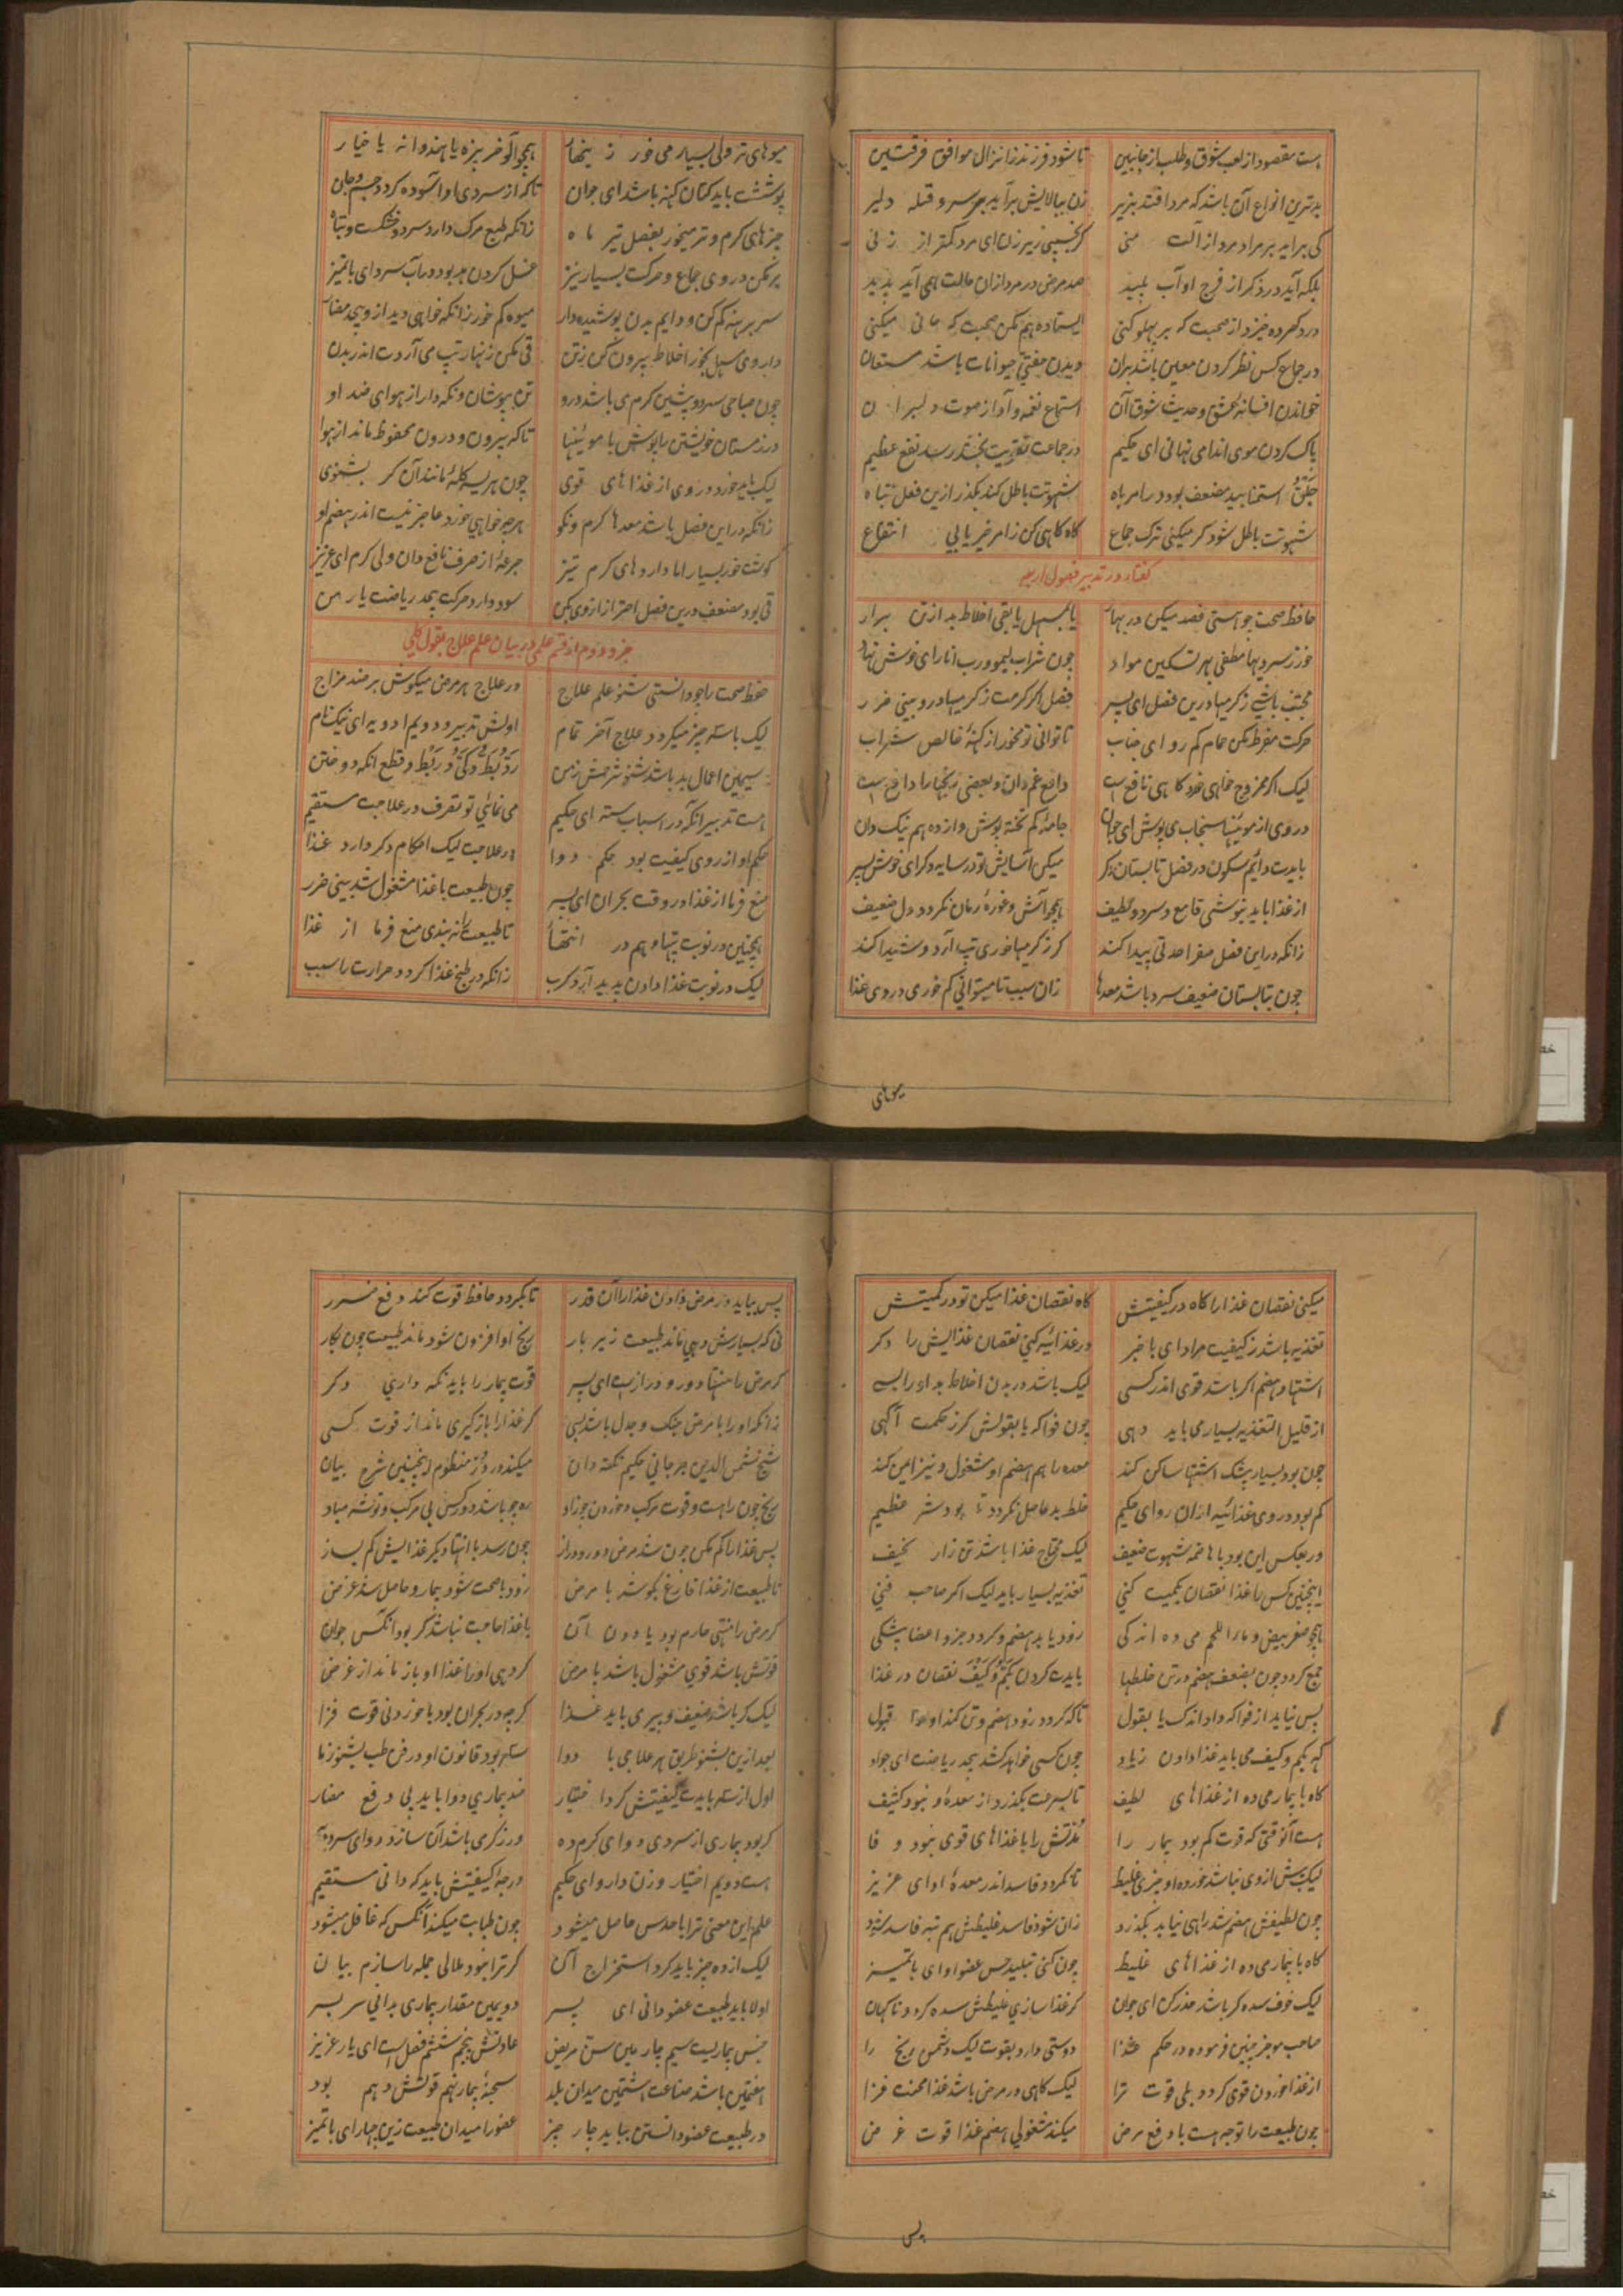 هست مقصود از لعب شوق و طلب از جانبین تا شود فرزند ز انزال موافق فرقتین
بدترین انواع آن باشد که مرد افتد بزیر زن ببالایش برآید بر سر و قبله دلیر
کی برآید بر مراد مرد از آلت منی گر بخسپی زیر زن ای مرد کمتر از زنی
بلکه آید در ذکر از فرج او آب پلید صد مرض در مرد ازان حالت همی آید پدید
درد گرده خیزد از صحبت که بر پهلو کنی ایستاده هم مکن صحبت که جانی میکنی
در جماع کس نظر کردن معین باشد بران دیدن جفتی حیوانات باشد مستعان
خواندن افسانهٔ عشق و حدیث شوق آن استماع نغمه و آواز صوت دلبران
پاک کردن موی اندامی نهانی ای حکیم در جماعت تقویت بخشد رسد نفع عظیم
جلق و استمنا بید مضعف بود در امر باه شهوتت باطل کند بگذر ازین فعل تباه
شهوتت باطل شود گر میکنی ترک جماع گاه گاهی کن زامر خیر یابی انتفاع
گفتار در تدبیر فصول اربعه
حافظ صحت چو هستی فصد میکن در بهار یا بمسهل یا بقی اخلاط بد از تن برار
خور ز سردیها مطفی بهر تسکین مواد چون شراب لیمو و رب انار ای خوش نهاد
مجتنب باشی ز گرمیها درین فصل ای پسر فصل اگر گرمست ز گرمیها درو بینی ضرر
حرکت مفرط مکن حمام کم رو ای جناب تا توانی تو مخور از کهنهٔ خالص شراب
لیک اگر ممزوج خواهی خورد گاهی نافع است دافع غم دان و بعضی رنجها را دافع است
در وی از موئینها سنجاب می پوش ای جوان جامهٔ کم تخته پوش و ازده هم نیک دان
بایدت دایم سکون در فصل تابستان دگر میکن آسایش تو در سایه دگر ای خوش سیر
از غذا باید بنوشی قامع و سرد و لطیف همچو آش و غورهٔ رمان نگردد دل ضعیف
زانکه در این فصل صفرا حدتی پیدا کند گر ز گرمیها خوری تب آرد و شیدا کند
چون بتابستان ضعیف سرد باشد معدها زان سبب تا میتوانی کم خوری در وی غذا
میوهای
میوهای تر ولی بسیار می خور زینهار همچو آلو خربزه یا هندوانه یا خیار
پوششت باید کتان کهنه باشد ای جوان تا که از سردی او آسوده گردد جسم و جان
چیزهای گرم و تر میخور بفصل تیر ماه زانکه طبع مرگ دارد سرد و خشکست و تباه
پر مکن در وی جماع و حرکت بسیار نیز غسل کردن بد بود در آب سرد ای باتمیز
سر برهنه کم کن و دایم بدن پوشیده دار میوه کم خور زانکه خواهی دید از وی مضار
داروی مسهل بخور اخلاط بیرون کن زتن قی مکن زنهار تب می آردت اندر بدن
چون صباحی سرد و پیشین گرم می باشد درو تن بپوشان و نگه دار از هوای ضد او
در زمستان خویشتن را پوش با موئینها تا که بیرون و درون محفوظ ماند از هوا
لیک باید خورد در وی از غذاهای قوی چون هریسه کله مانند آن گر بشنوی
زانکه در این فصل باشد معدها گرم و نکو هرچه خواهی خورد عاجز نیست اندر هضم او
گوشت خور بسیار اما داروهای گرم تیز جرعهٔ از صرف نافع دان ولی کرم ای عزیز
قی بود مضعف درین فصل احتراز از وی بکن سود دارد حرکت بیحد ریاضت یار من
جزو دوم از قسم علمی در بیان علم علاج بقول کلی
حفظ صحت را چو دانستی شنو علم علاج در علاج هر مرض میکوش بر ضد مزاج
لیک با سه چیز میگردد علاج آخر تمام اولش تدبیر و دویم ادویه ای نیکنام
سیمین اعمال ید باشد شنو شرحش ز من رد و بط و کی و ربط و قطع آنگه دوختن
هست تدبیر آنکه در اسباب سته ای حکیم می نمائی تو تصرف در علاجت مستقیم
حکم او از روی کیفیت بود حکم دوا در علاجت لیک احکام دگر دارد غذا
منع فرما از غذا در وقت بحران ای پسر چون طبیعت با غذا مشغول شد بینی ضرر
همچنین در نوبت تبها و هم در انتها تا طبیعت را نبندی منع فرما از غذا
لیک در نوبت غذا دادن پدید آرد کرب زانکه در طبخ غذا گردد حرارت را سبب
میکنی نقصان غذا را گاه در کیفیتش گاه نقصان غذا میکن تو در کمیتش
تغذیه باشد ز کیفیت مراد ای با خبر در غذائیه کنی نقصان غذایش را دگر
اشتها و هضم اگر باشد قوی اندر کسی لیک باشد در بدن اخلاط بد او را بسی
از قلیل التغذیه بسیار می باید دهی چون فواکه یا بقولش گر ز حکمت آگهی
چون بود بسیار بیشک اشتها ساکن کند معده را هم هضم او مشغول و نیز ایمن کند
کم بود در وی غذائیه ازان رو ای حکیم خلط بد حاصل نگردد تا بود شر عظیم
ور بعکس این بود با هاضمه شهوت ضعیف لیک محتاج غذا باشد تن زار نحیف
اینچنین کس را غذا نقصان بکمیت کنی تغذیه بسیار باید لیک اگر صاحب فنی
همچو صفر بیض و ماء اللحم می ده اندکی زود یابد هضم و گردد جزو اعضا بیشکی
جمع گردد چون بضعف هضم در تن خلطها بایدت کردن بکم و کیف نقصان در غذا
پس نیاید از فواکه داد اندک یا بقول تا که گردد زود هضم و تن کند او را قبول
گه بکم و کیف می باید غذا دادن زیاد چون کسی خواهد کشد بیحد ریاضت ای جواد
گاه با بیمار می ده از غذاهای لطیف تا بسرعت بگذرد از معدهٔ و نبود کثیف
هست آنوقتی که قوت کم بود بیمار را مدتش را با غذاهای قوی نبود وفا
لیک پیش از وی نباشد خورده او چیزی غلیظ تا نگردد فاسد اندر معدهٔ او ای عزیز
چون لطیفش هضم شد راهی نیابد بگذرد زان شود فاسد غلیظش هم تبه فاسد شود
گاه با بیمار می ده از غذاهای غلیظ چون کنی تبلید حس عضو او ای باتمیز
لیک خوف سده گر باشد حذر کن ای جوان گر غذا سازی غلیظش سده گردد ناگهان
صاحب موجز چنین فرموده در حکم غذا دوستی دارد بقوت لیک دشمن رنج را
از غذا خوردن قوی گردد بلی قوت ترا لیک گاهی در مرض باشد غذا محنت فزا
چون طبیعت را توجه هست با دفع مرض میکند مشغولی هضم غذا قوت غرض
پس
پس بباید در مرض دادن غذا را آن قدر تا نگردد حافظ قوت کند دفع ضرر
نی که بسیارش دهی ماند طبیعت زیر بار رنج او افزون شود ماند طبیعت چون بکار
گر مرض را منتها دور و درازست ای پسر قوت بیمار را باید نگه داری دگر
زانکه او را با مرض جنگ و جدل باشد بسی گر غذا را بازگیری ماند از قوت کسی
شیخ شمس الدین جرجانی حکیم نکته دان میکند در منظوم اینچنین شرح بیان
رنج چون راهست و قوت مرکب و خوردن چو زاد ره چو باشد دور کس بی مرکب و توشه مباد
پس غذا را کم مکن چون شد مرض دور و دراز چون رسد با انتها دیگر غذایش کم بساز
تا طبیعت از غذا فارغ بکوشد با مرض زود با صحت شود بیمار و حاصل شد غرض
گر مرض را منتهی حارم بود یا دون آن با غذا حاجت نباشد گر بود آنکس جوان
قوتش باشد قوی مشغول باشد با مرض گر دهی او را غذا او باز ماند از غرض
لیک گر باشد ضعیف و پیری باید غذا گرچه در بحران بود با خوردنی قوت فزا
بعد ازین بشنو طریق هر علاجی با دوا سه بود قانون او در فن طب بشنو ز ما
اول از سه بایدت کیفیتش کرد اختیار ضد بیماری دوا باید پی دفع مضار
گر بود بیماری از سردی دوای گرم ده ور ز گرمی باشد آن سازد دوای سرد به
هست دویم اختیار وزن دارو ای حکیم درجهٔ کیفیتش باید که دانی مستقیم
علم این معنی ترا با حدس حاصل میشود چون طبابت میکند آنکس که غافل میشود
لیک از ده چیز باید کرد استخراج آن گر ترا نبود ملالی جمله را سازم بیان
اولا باید طبیعت عضو دانی ای پسر دویمین مقدار بیماری بدانی سربسر
جنس بیماریست سیم چارمین سن مریض عادتش پنجم ششم فصل است ای یار عزیز
هفتمین باشد صناعت هشتمین میدان بلد سحنهٔ بیمار نهم قوتش دهم بود
در طبیعت عضو دانستن بباید چار چیز عضو را میدان طبیعت زین چهار ای باتمیز